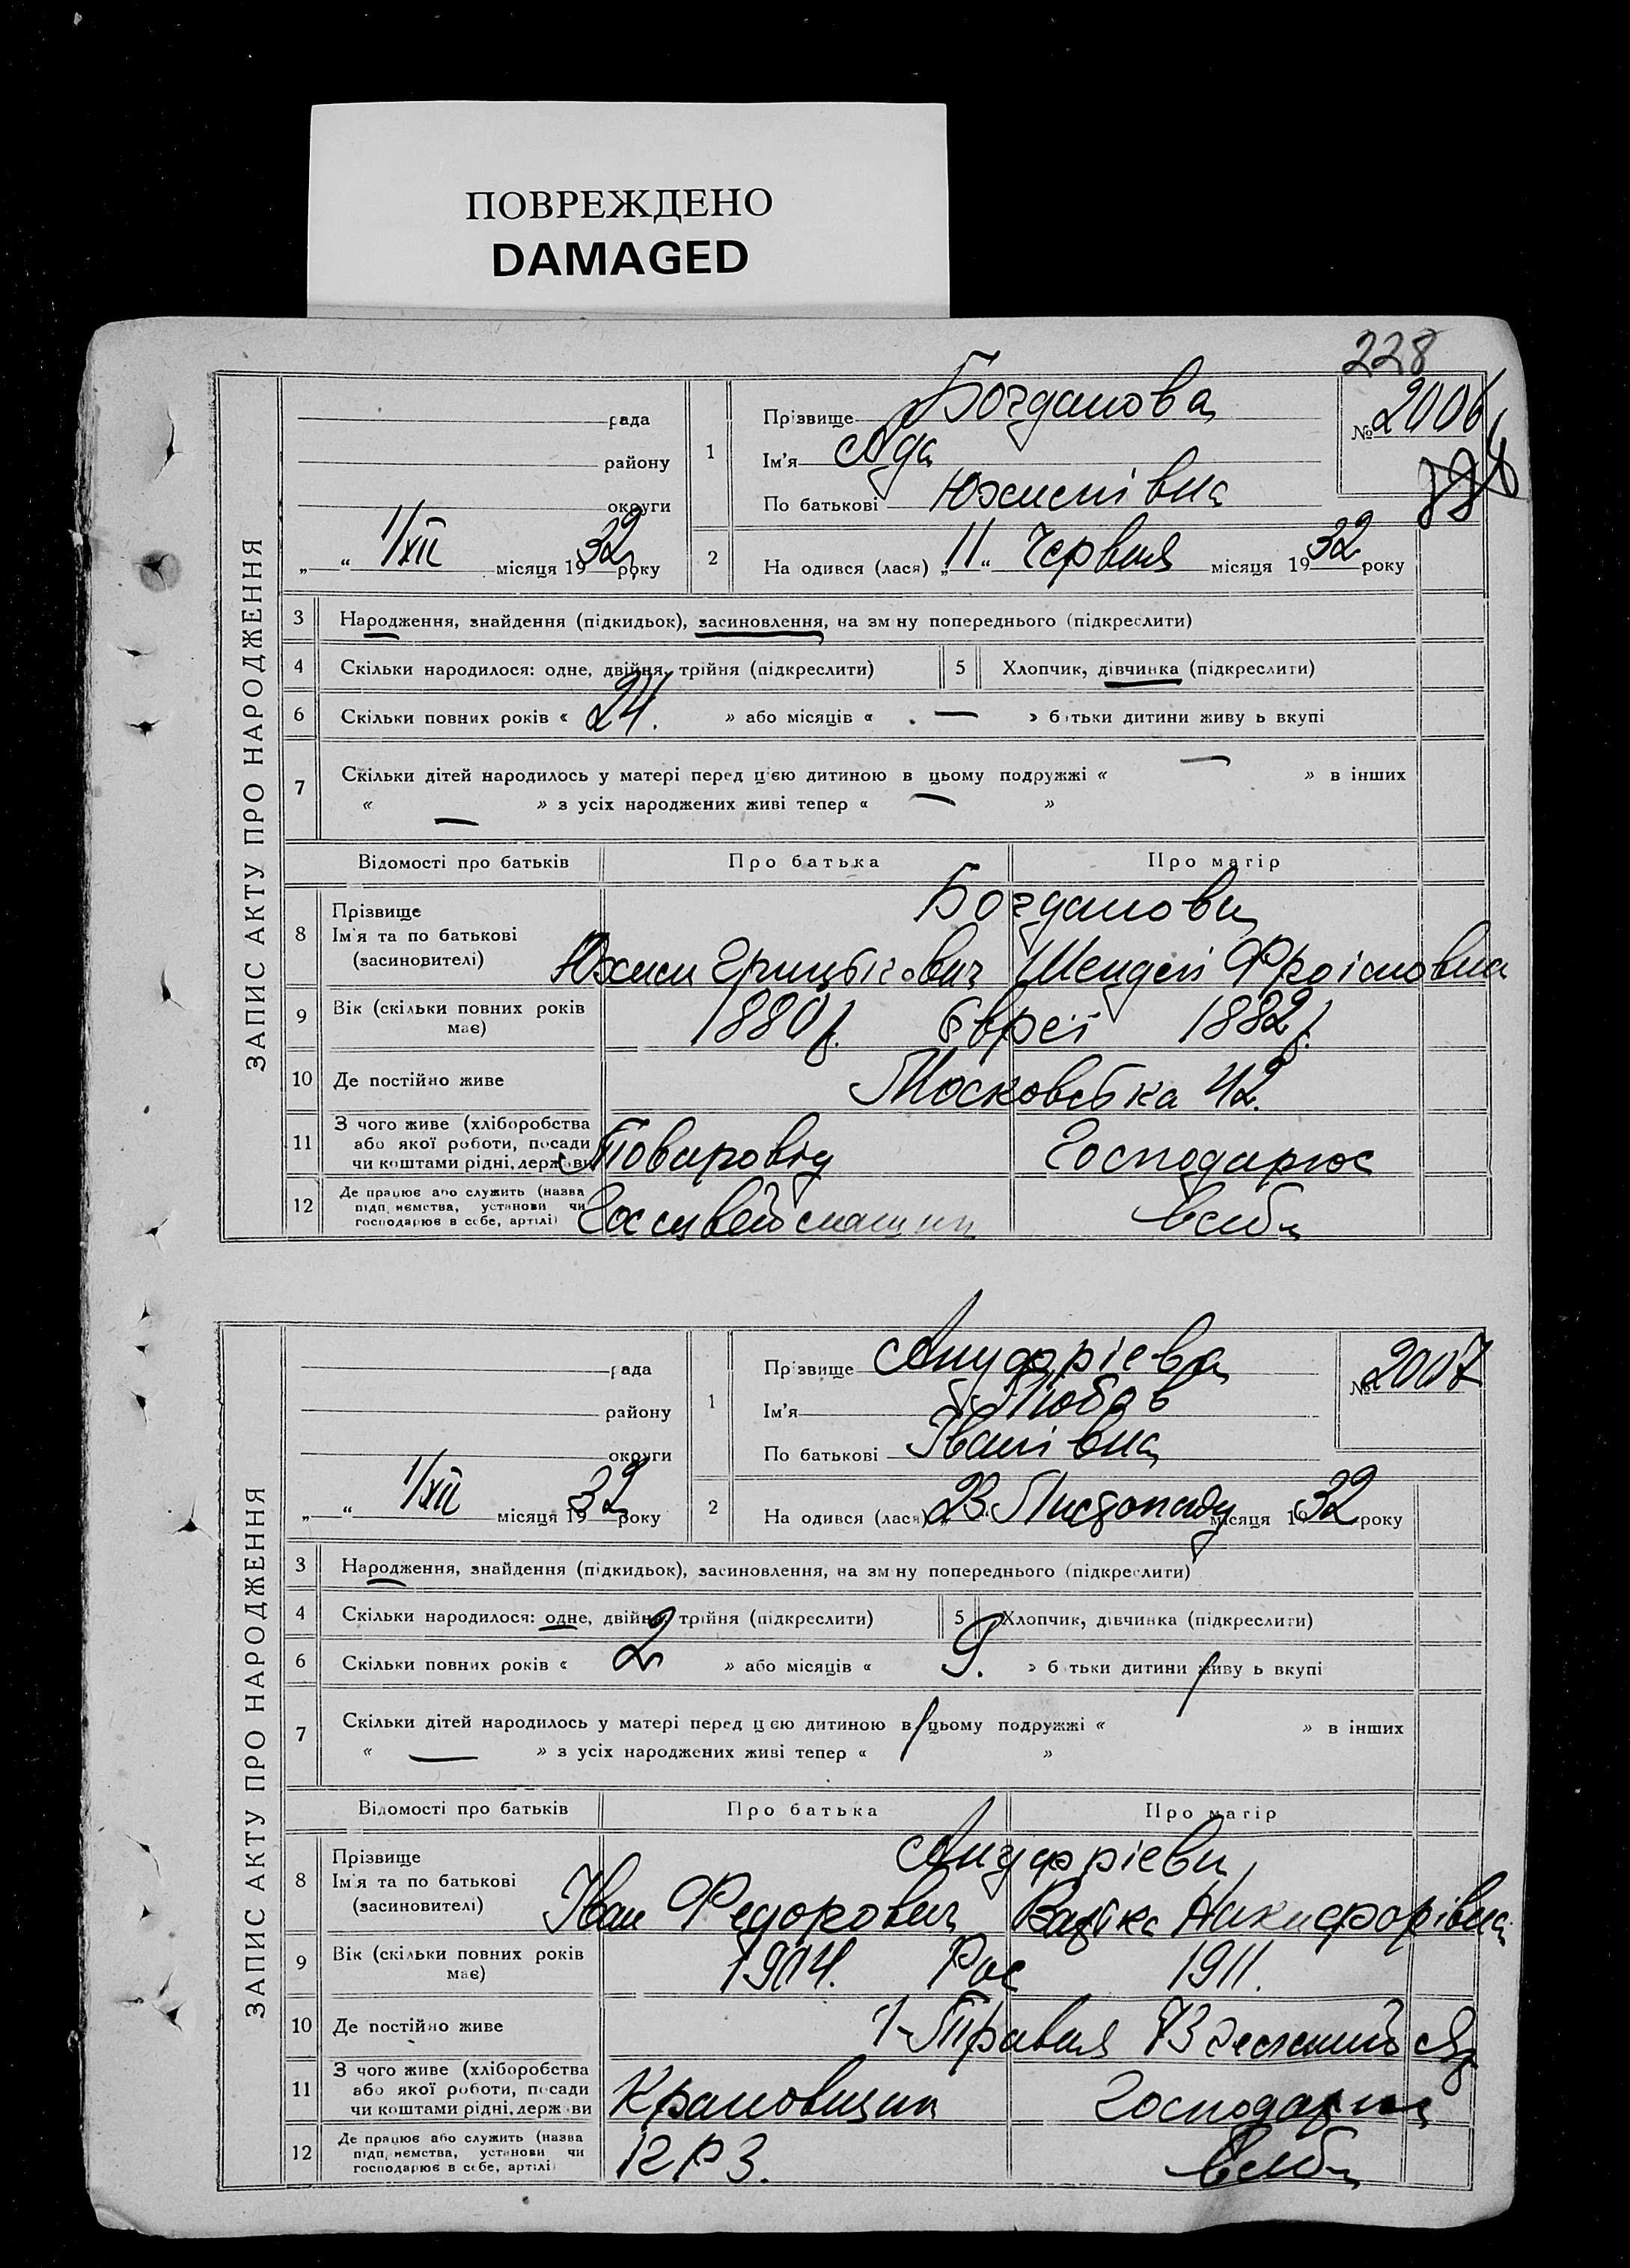 ПОВРЕЖДЕНО
DAMAGED
228
ЗАПИС АКТУ ПРО НАРОДЖЕННЯ
рада
району
округи
„ “ 1/XII місяця 1932 року
1
Прізвище Богданова
Ім'я Ада
По батькові
№ 2006
2
На одився (лася) „11“ Червня місяця 1932 року
3 Народження, знайдення (підкидьок), засиновлення, на зм ну попереднього (підкреслити)
4 Скільки народилося: одне, двійня, трійня (підкреслити) 5 Хлопчик, дівчинка (підкреслити)
6 Скільки повних років « 24. » або місяців « — » б тьки дитини живу ь вкупі
7 Скільки дітей народилось у матері перед цією дитиною в цьому подружжі « — » в інших
« — » з усіх народжених живі тепер « — »
Відомості про батьків Про батька Про матір
8 Прізвище
Ім'я та по батькові
(засиновителі)
Богданови
9 Вік (скільки повних років має) 1880 р. Євреї 1882 р.
10 Де постійно живе Московська 42.
11 З чого живе (хліборобства
або якої роботи, посади
чи коштами рідні, держ ви
Товаровід Господарює
12 Де працює або служить (назва
підп иємства, установи чи
господарює в себе, артілі)
в себе
ЗАПИС АКТУ ПРО НАРОДЖЕННЯ
рада
району
округи
„ “ 1/XII місяця 1932 року
1
Прізвище Ануфріева
Ім'я Любов
По батькові Іванівна
№ 2007
2
На одився (лася) „23. Листопаду місяця 1932 року
3 Народження, знайдення (підкидьок), засиновлення, на зм ну попереднього (підкреслити)
4 Скільки народилося: одне, двійня, трійня (підкреслити) 5 Хлопчик, дівчинка (підкреслити)
6 Скільки повних років « 2 » або місяців « 9. » б тьки дитини живу ь вкупі
7 Скільки дітей народилось у матері перед цією дитиною в цьому подружжі « » в інших
« — » з усіх народжених живі тепер « »
Відомості про батьків Про батька Про матір
8 Прізвище
Ім'я та по батькові
(засиновителі)
Ануфріеви
Іван Федорович Никифорівна
9 Вік (скільки повних років має) 1904. Рос 1911.
10 Де постійно живе 1-Травня
11 З чого живе (хліборобства
або якої роботи, посади
чи коштами рідні, держ ви
Крановщик Господарює
12 Де працює або служить (назва
підп иємства, установи чи
господарює в себе, артілі)
в себе